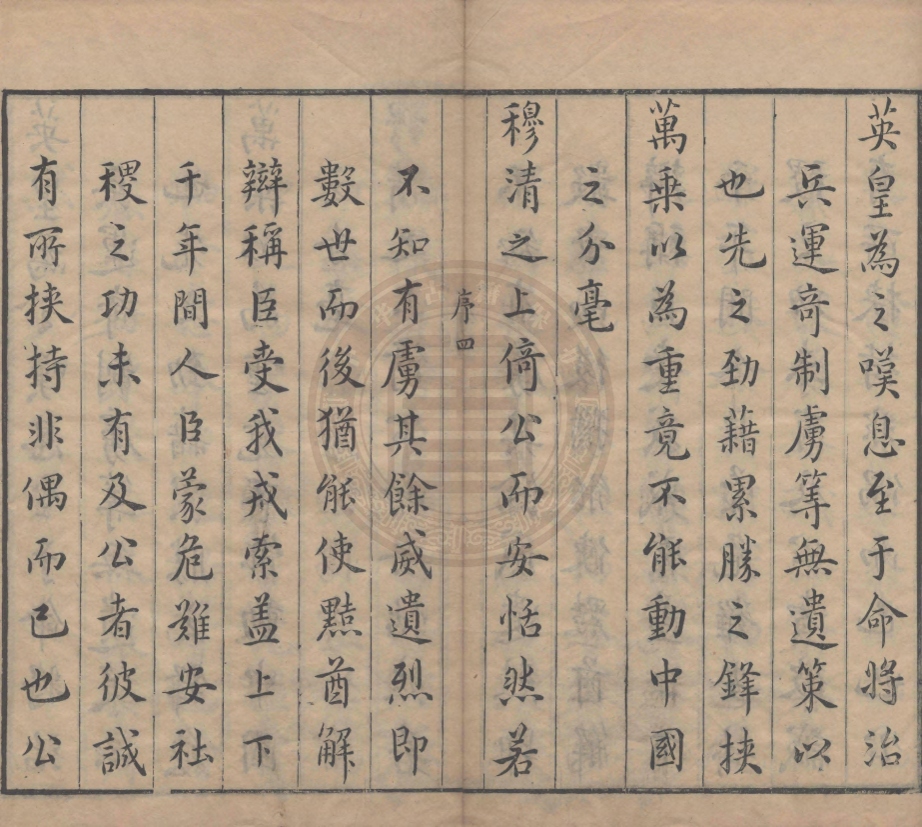 英皇為之嘆息至于命將治
兵運奇制虜等無遺策以
也先之勁藉累勝之鋒挾
萬乗以為重竟不能動中國
之分毫
穆清之上倚公而安恬然若
序 四
不知有虜其餘威遺烈即
數世而後猶能使黠酋解
辯稱臣受我戎索盖上下
千年間人臣蒙危難安社
稷之功未有及公者彼誠
有所挾持非偶而已也公